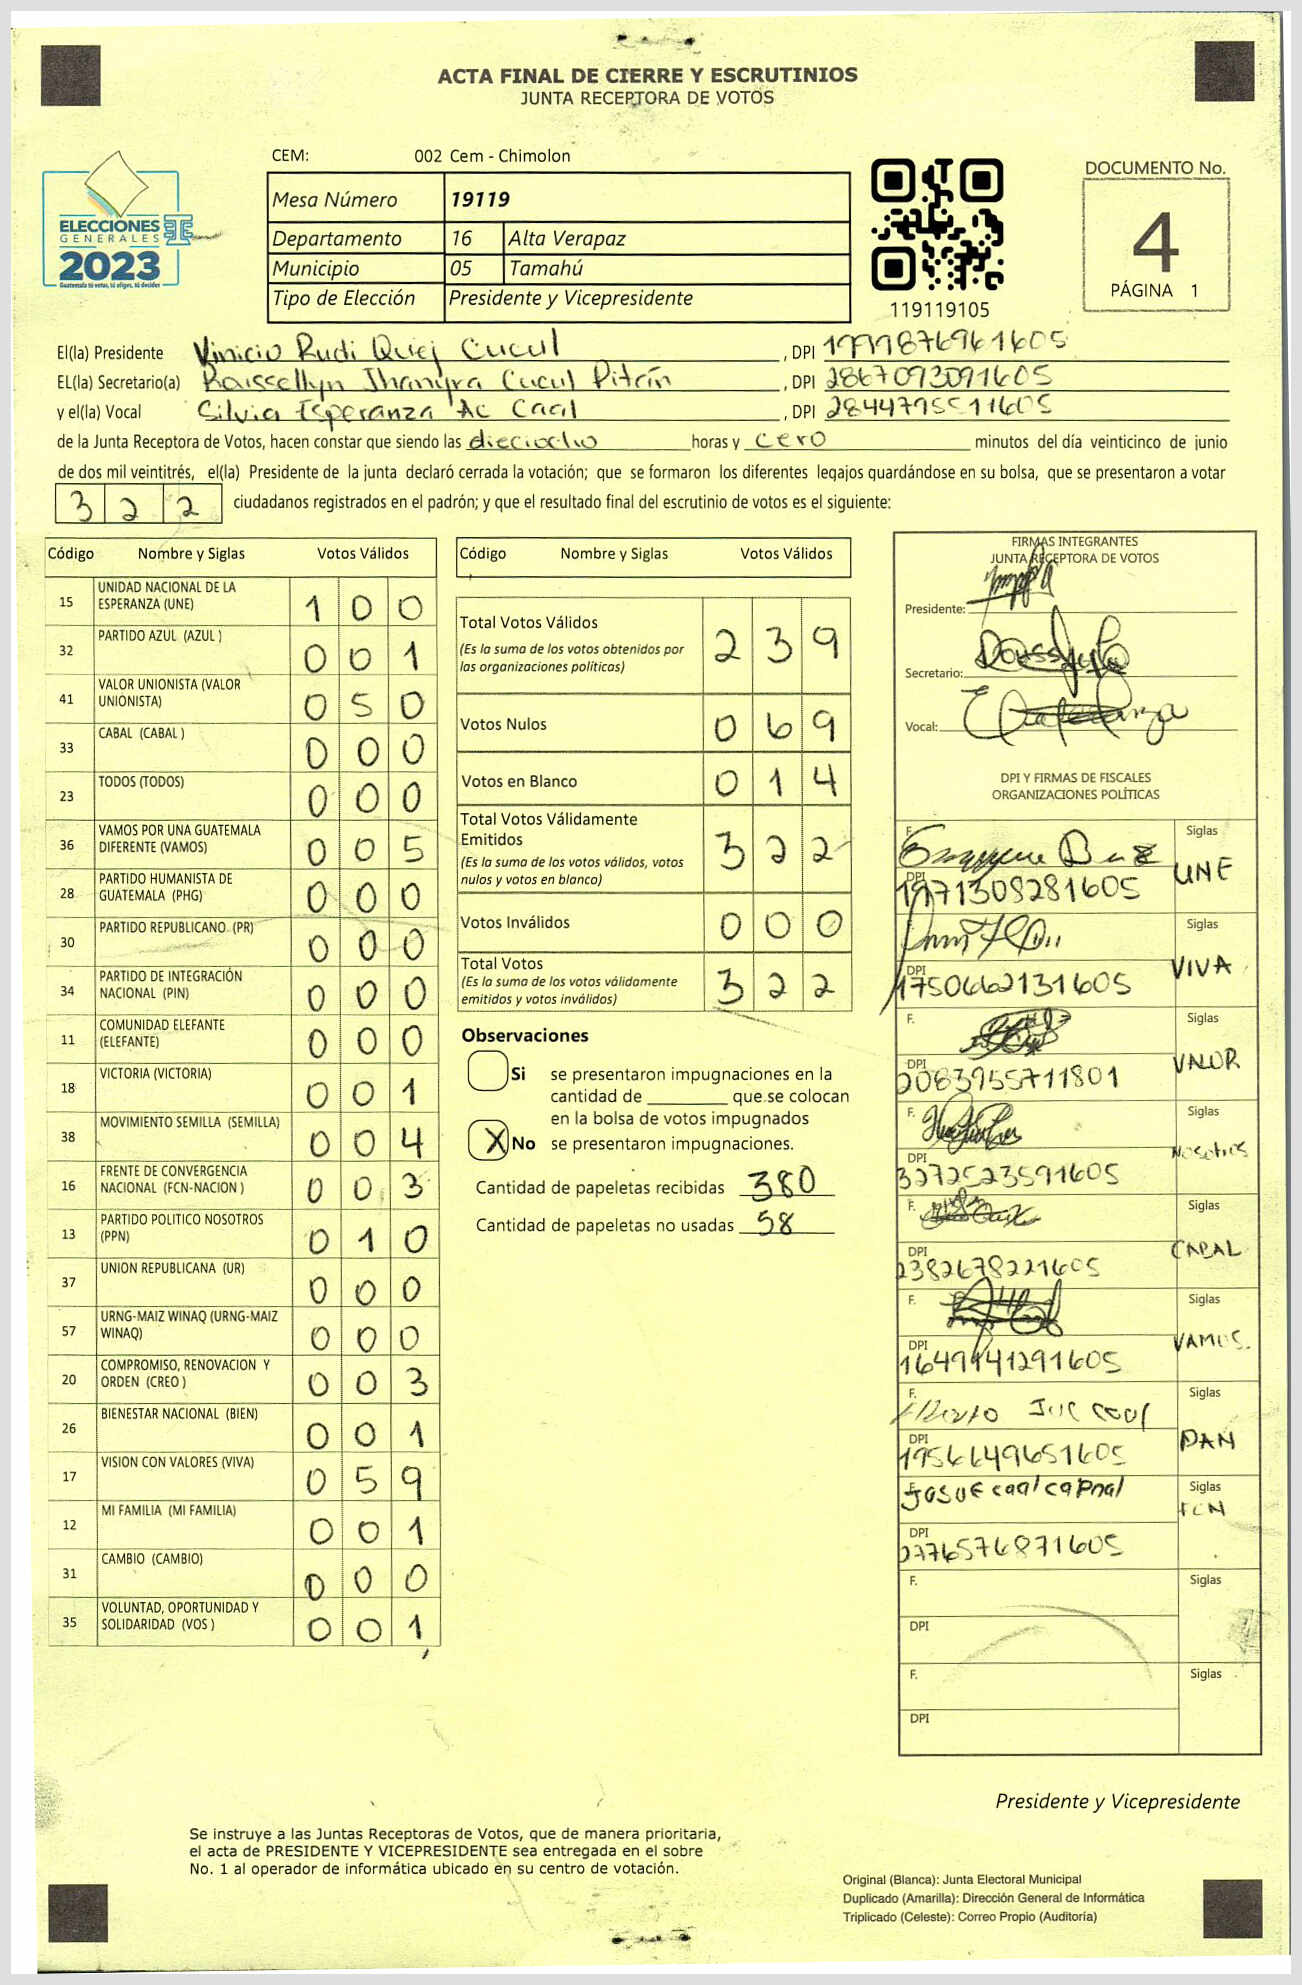 ACTA FINAL DE CIERRE Y ESCRUTINIOS
JUNTA RECEPTORA DE VOTOS
CEM: 002 Cem - Chimolon
Mesa Número 19119
Departamento 16 Alta Verapaz
Municipio 05 Tamahú
Tipo de Elección Presidente y Vicepresidente
ELECCIONES
GENERALES
2023
Guatemala tú votas, tú eliges, tú decides
119119105
DOCUMENTO No.
4
PÁGINA 1
El(la) Presidente Vinicio Rudi Quej Cucul , DPI
EL(la) Secretario(a) Cucul , DPI 2867093091605
y el(la) Vocal Silvia Esperanza Ac Caal , DPI 2844795511605
de la Junta Receptora de Votos, hacen constar que siendo las dieciocho horas y cero minutos del día veinticinco de junio
de dos mil veintitrés, el(la) Presidente de la junta declaró cerrada la votación; que se formaron los diferentes legajos quardándose en su bolsa, que se presentaron a votar
3 2 2 ciudadanos registrados en el padrón; y que el resultado final del escrutinio de votos es el siguiente:
Código Nombre y Siglas Votos Válidos
15 UNIDAD NACIONAL DE LA
ESPERANZA (UNE) 1 0 0
32 PARTIDO AZUL (AZUL ) 0 0 1
41 VALOR UNIONISTA (VALOR
UNIONISTA) 0 5 0
33 CABAL (CABAL ) 0 0 0
23 TODOS (TODOS) 0 0 0
36 VAMOS POR UNA GUATEMALA
DIFERENTE (VAMOS) 0 0 5
28 PARTIDO HUMANISTA DE
GUATEMALA (PHG) 0 0 0
30 PARTIDO REPUBLICANO (PR) 0 0 0
34 PARTIDO DE INTEGRACIÓN
NACIONAL (PIN) 0 0 0
11 COMUNIDAD ELEFANTE
(ELEFANTE) 0 0 0
18 VICTORIA (VICTORIA) 0 0 1
38 MOVIMIENTO SEMILLA (SEMILLA) 0 0 4
16 FRENTE DE CONVERGENCIA
NACIONAL (FCN-NACION ) 0 0 3
13 PARTIDO POLITICO NOSOTROS
(PPN) 0 1 0
37 UNION REPUBLICANA (UR) 0 0 0
57 URNG-MAIZ WINAQ (URNG-MAIZ
WINAQ) 0 0 0
20 COMPROMISO, RENOVACION Y
ORDEN (CREO ) 0 0 3
26 BIENESTAR NACIONAL (BIEN) 0 0 1
17 VISION CON VALORES (VIVA) 0 5 9
12 MI FAMILIA (MI FAMILIA) 0 0 1
31 CAMBIO (CAMBIO) 0 0 0
35 VOLUNTAD, OPORTUNIDAD Y
SOLIDARIDAD (VOS ) 0 0 1
Código Nombre y Siglas Votos Válidos
Total Votos Válidos 2 3 9
(Es la suma de los votos obtenidos por
las organizaciones políticas)
Votos Nulos 0 6 9
Votos en Blanco 0 1 4
Total Votos Válidamente
Emitidos 3 2 2
(Es la suma de los votos válidos, votos
nulos y votos en blanco)
Votos Inválidos 0 0 0
Total Votos
(Es la suma de los votos válidamente
emitidos y votos inválidos) 3 2 2
Observaciones
Si se presentaron impugnaciones en la
cantidad de ________ que se colocan
en la bolsa de votos impugnados
X No se presentaron impugnaciones.
Cantidad de papeletas recibidas 380
Cantidad de papeletas no usadas 58
FIRMAS INTEGRANTES
JUNTA RECEPTORA DE VOTOS
Presidente:
Secretario:
Vocal:
DPI Y FIRMAS DE FISCALES
ORGANIZACIONES POLÍTICAS
F. Siglas
UNE
DPI
1971308281605
Siglas
VIVA
DPI
1750662131605
F. Siglas
VALOR
DPI
2083955711801
F. Siglas
Nosotros
DPI
3272523591605
F. Siglas
CABAL
DPI
2382678221605
F. Siglas
VAMOS.
DPI
1649941291605
F. Siglas
PAN
DPI
1956649651605
F. Josue caal Siglas
FCN
DPI
2776576871605
F. Siglas
DPI
F. Siglas
DPI
Presidente y Vicepresidente
Se instruye a las Juntas Receptoras de Votos, que de manera prioritaria,
el acta de PRESIDENTE Y VICEPRESIDENTE sea entregada en el sobre
No. 1 al operador de informática ubicado en su centro de votación.
Original (Blanca): Junta Electoral Municipal
Duplicado (Amarilla): Dirección General de Informática
Triplicado (Celeste): Correo Propio (Auditoría)